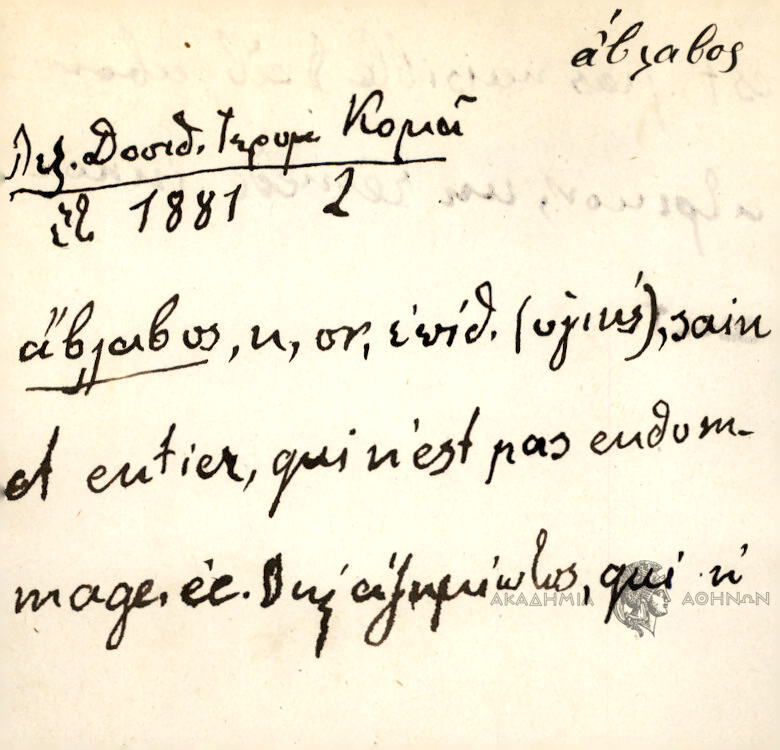 άβλαβος
Λεξ. Δοσιθ. Ιερομ. Κομᾶ
ἐξ 1881 2
ἄβλαβος, η, ον, ἐπίθ. (ὑγιής), sain
et entier, qui n'est pas endom-
magé, ée. ἀζημίωτος, qui n'
ΑΚΑΔΗΜΙΑ ΑΘΗΝΩΝ